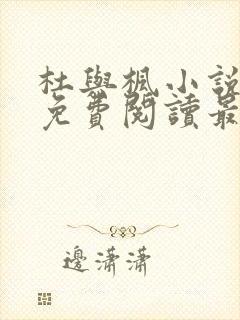 杜與楓小說
免費閱讀最
邊瀟瀟